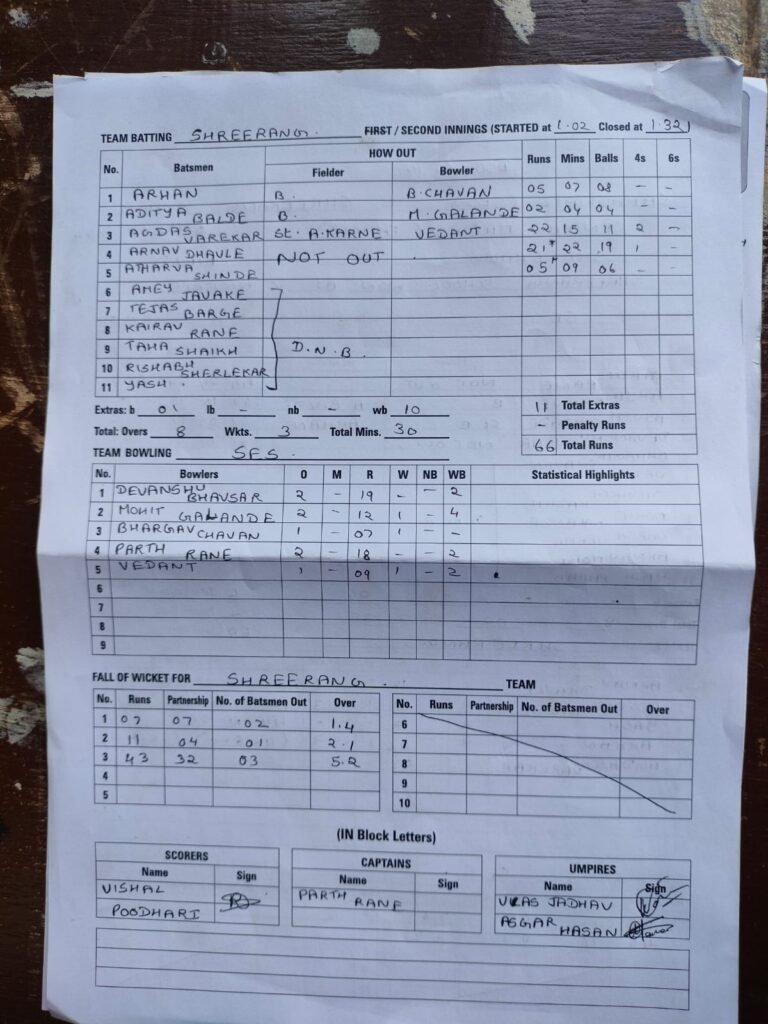 TEAM BATTING SHREERANG. FIRST / SECOND INNINGS (STARTED at 1.02 Closed at 1.32)
No. Batsmen HOW OUT Runs Mins Balls 4s 6s
Fielder Bowler
1 ARHAN B. B. CHAVAN 05 07 08 - -
2 ADITYA BALDE B. M. GALANDE 02 04 04 - -
3 AGDAS VAREKAR St. A. KARNE VEDANT 22 15 11 2 -
4 ARNAV DHAVLE NOT OUT 21* 22 19 1 -
5 ATHARVA SHINDE 05* 09 06 - -
6 AMEY JAVAKE
7 TEJAS BARGE
8 KAIRAV RANE
9 TAHA SHAIKH D.N.B.
10 RISHABH SHERLEKAR
11 YASH.
Extras: b 01 lb - nb - wb 10 11 Total Extras
- Penalty Runs
Total: Overs 8 Wkts. 3 Total Mins. 30 66 Total Runs
TEAM BOWLING SFS.
No. Bowlers O M R W NB WB Statistical Highlights
1 DEVANSHU BHAVSAR 2 - 19 - - 2
2 MOHIT GALANDE 2 - 12 1 - 4
3 BHARGAV CHAVAN 1 - 07 1 - -
4 PARTH RANE 2 - 18 - - 2
5 VEDANT 1 - 09 1 - 2
6
7
8
9
FALL OF WICKET FOR SHREERANG. TEAM
No. Runs Partnership No. of Batsmen Out Over No. Runs Partnership No. of Batsmen Out Over
1 07 07 02 1.4 6
2 11 04 01 2.1 7
3 43 32 03 5.2 8
4 9
5 10
(IN Block Letters)
SCORERS CAPTAINS UMPIRES
Name Sign Name Sign Name Sign
VISHAL PARTH RANE JADHAV
POODHARI ASGAR HASAN